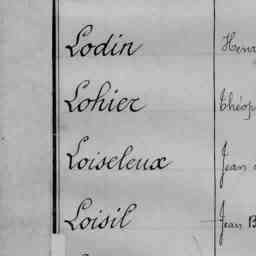 Lodin
Lohier Théop
Loiseleux Jean
Loisil Jean B